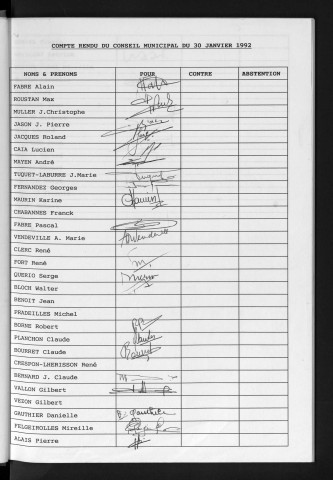 COMPTE RENDU DU CONSEIL MUNICIPAL DU 30 JANVIER 1992
NOMS & PRENOMS POUR CONTRE ABSTENTION
FABRE Alain
ROUSTAN Max
MULLER J.Christophe
JASON J. Pierre
JACQUES Roland
CAIA Lucien
MAYEN André
TUQUET-LABURRE J.Marie
FERNANDEZ Georges
MAURIN Karine
CHABANNES Franck
FABRE Pascal
VENDEVILLE A. Marie
CLERC René
FORT René
Serge
BLOCH Walter
BENOIT Jean
PRADEILLES Michel
BORNE Robert
PLANCHON Claude
BOURRET Claude
CRESPON-LHERISSON René
BERNARD J. Claude
VALLON Gilbert
Gilbert
GAUTHIER Danielle
FELGIROLLES Mireille
ALAIS Pierre